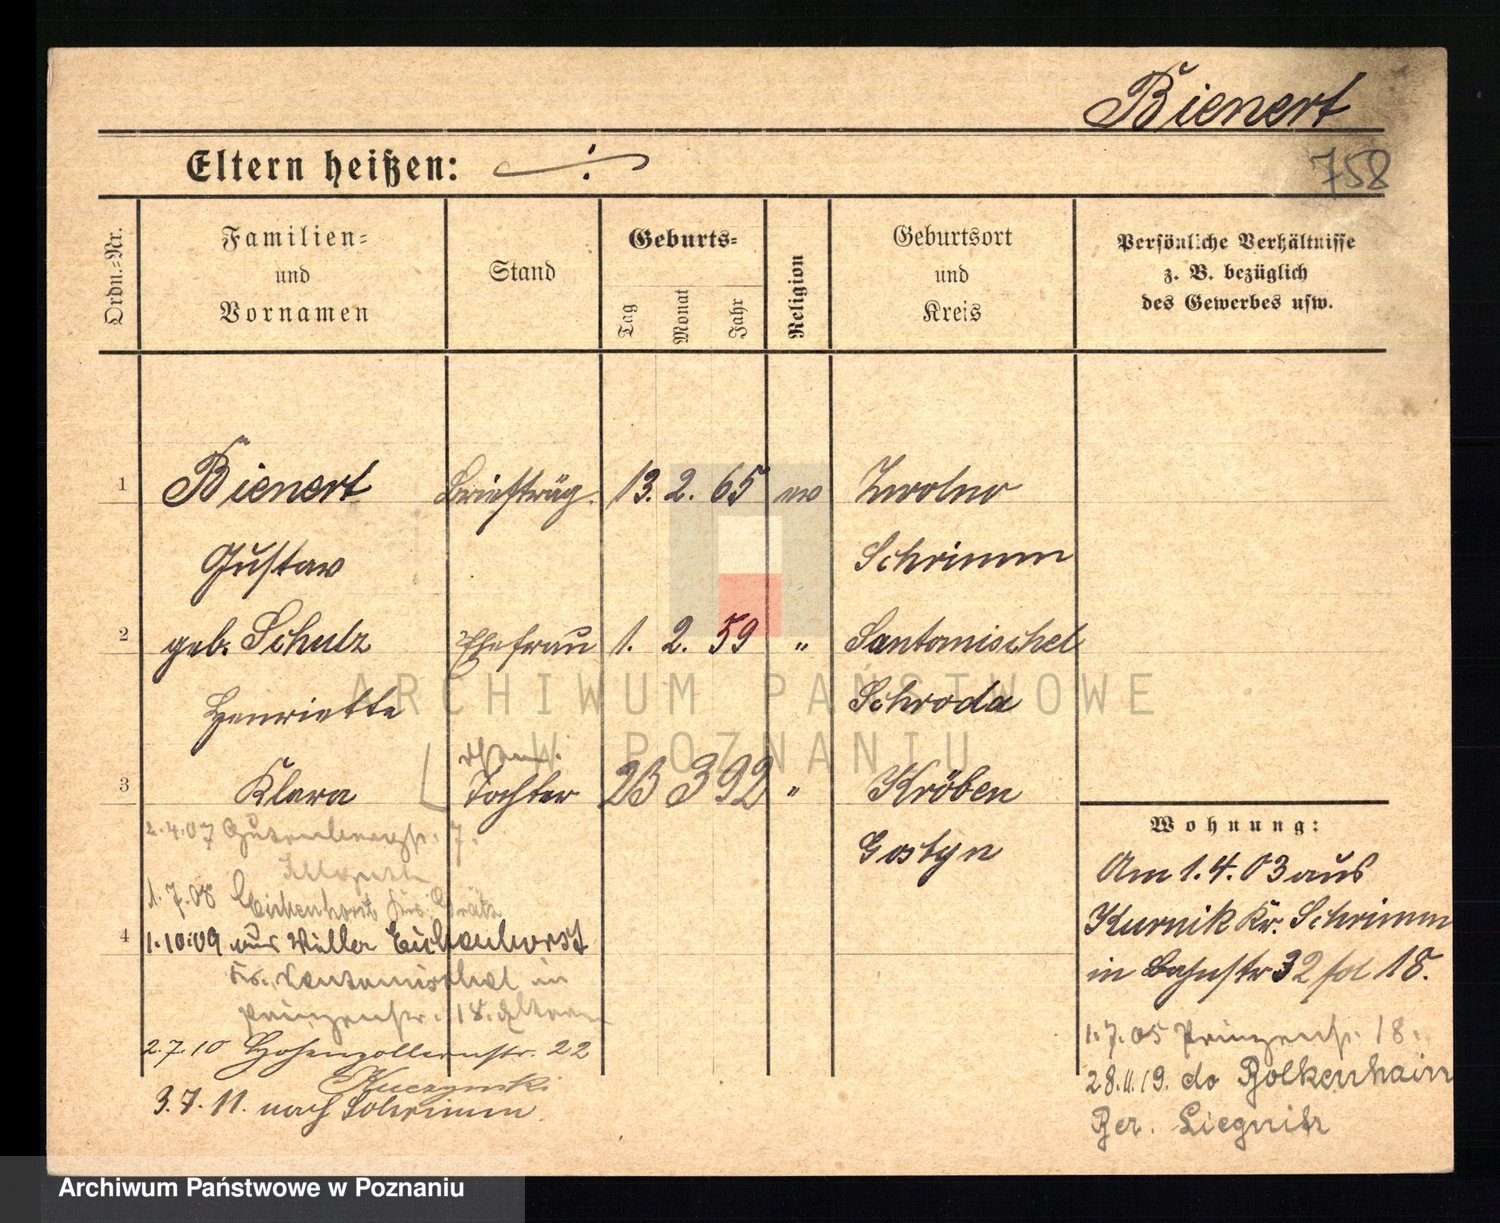 Bienert
758
Eltern heißen:
Ordn.-Nr.
Familien-
und
Vornamen
Stand
Geburts-
Tag
Monat
Jahr
Religion
Geburtsort
und
Kreis
Persönliche Verhältnisse
z. B. bezüglich
des Gewerbes usw.
1 Bienert Briefträg. 13. 2. 65 ev Zwolno
Gustav Schrimm
2 geb. Schulz Ehefrau 1. 2. 59 " Santomischel
Henriette Schroda
3 Klara Tochter 23 3 92 " Kröben
Gostyn
2.4.07 Gutenbergstr. 7.
1.7.08 Eichenhorst Grätz
4 1.10.09 aus Eichenhorst
Kr. Santomischel in
Prinzenstr. 18. Eltern
2.7.10 Hohenzollernstr. 22
3.7.11. nach Schrimm
Wohnung:
Am 1.4.03 aus
Kurnik Kr. Schrimm
in Bahnstr 32 18.
1.7.05 Prinzenstr. 18.
28.11.19. do Bolkenhain
Ber. Liegnitz
ARCHIWUM PAŃSTWOWE
W POZNANIU
Archiwum Państwowe w Poznaniu